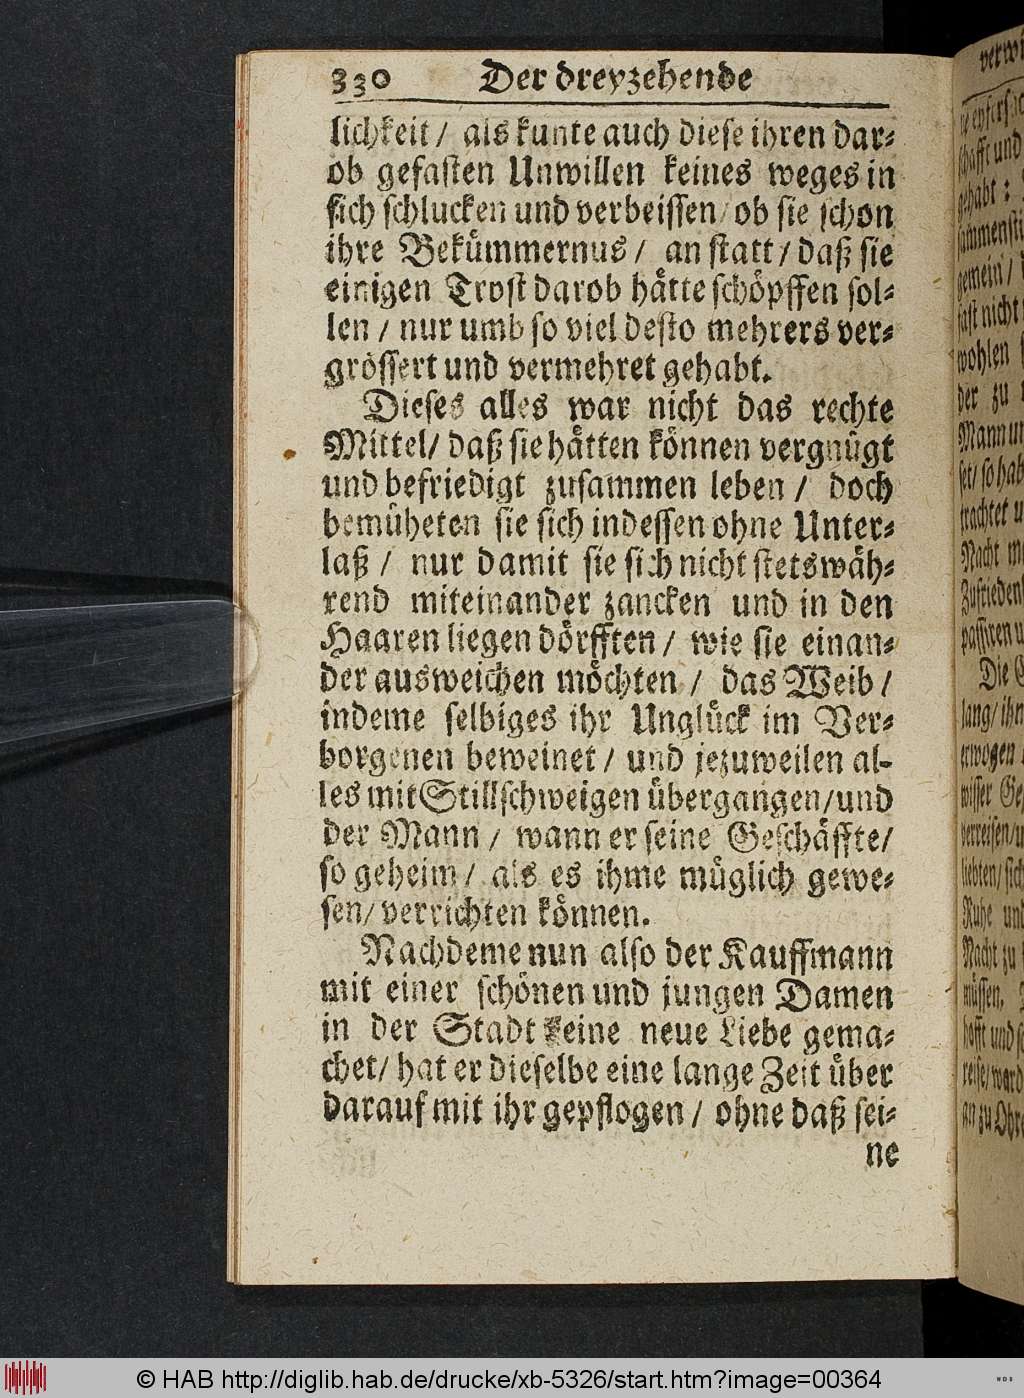 330 Der dreyzehende
lichkeit / als kunte auch diese ihren dar-
ob gefasten Unwillen keines weges in
sich schlucken und verbeissen / ob sie schon
ihre Bekümmernus / an statt / daß sie
einigen Trost darob hätte schöpffen sol-
len / nur umb so viel desto mehrers ver-
grössert und vermehret gehabt.
Dieses alles war nicht das rechte
Mittel / daß sie hätten können vergnügt
und befriedigt zusammen leben / doch
bemüheten sie sich indessen ohne Unter-
laß / nur damit sie sich nicht stetswäh-
rend miteinander zancken und in den
Haaren liegen dörfften / wie sie einan-
der ausweichen möchten / das Weib /
indeme selbiges ihr Unglück im Ver-
borgenen beweinet / und jezuweilen al-
les mit Stillschweigen übergangen / und
der Mann / wann er seine Geschäffte /
so geheim / als es ihme müglich gewe-
sen / verrichten können.
Nachdeme nun also der Kauffmann
mit einer schönen und jungen Damen
in der Stadt keine neue Liebe gema-
chet / hat er dieselbe eine lange Zeit über
darauf mit ihr gepflogen / ohne daß sei-
ne
verw
schafft und
gehabt :
gemein /
fast nicht
wohlen
der zu
Mann un
set / so hab
trachtet u
Nacht me
Zufrieden
passiren u
Die
lang / ihn
erwogen
wisser Ge
verreisen / u
liebten / sich
Ruhe und
Nacht zu
müssen.
hofft und s
reise / ward
an zu Ohre
© HAB http://diglib.hab.de/drucke/xb-5326/start.htm?image=00364
WDB